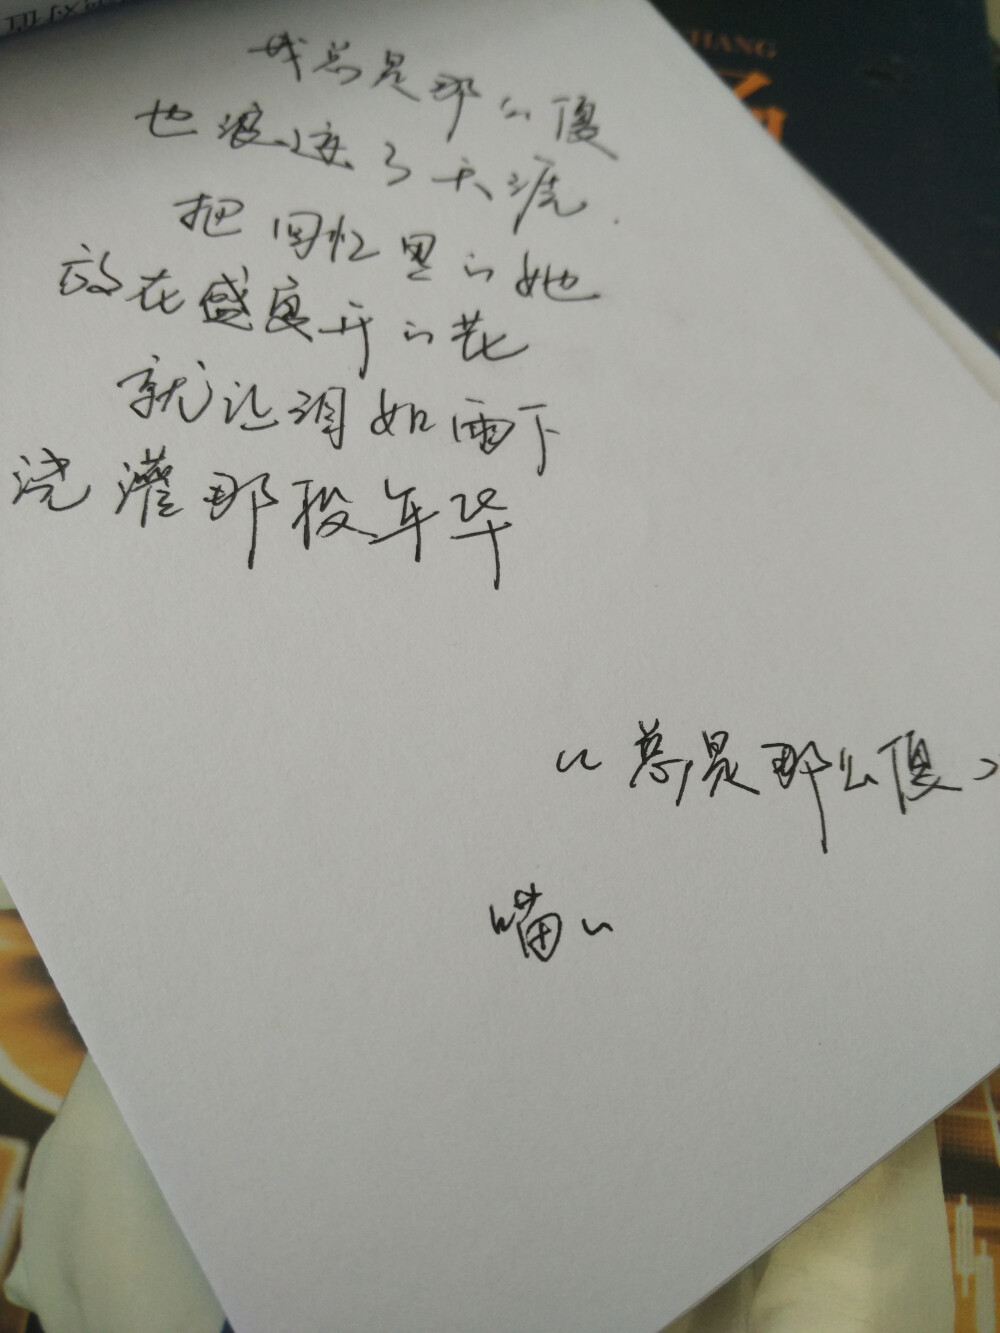 我总是那么傻
也浪迹了天涯.
把回忆里的她
放在盛夏开的花
就让泪如雨下
浇灌那段年华
《总是那么傻》
喵~
HANG